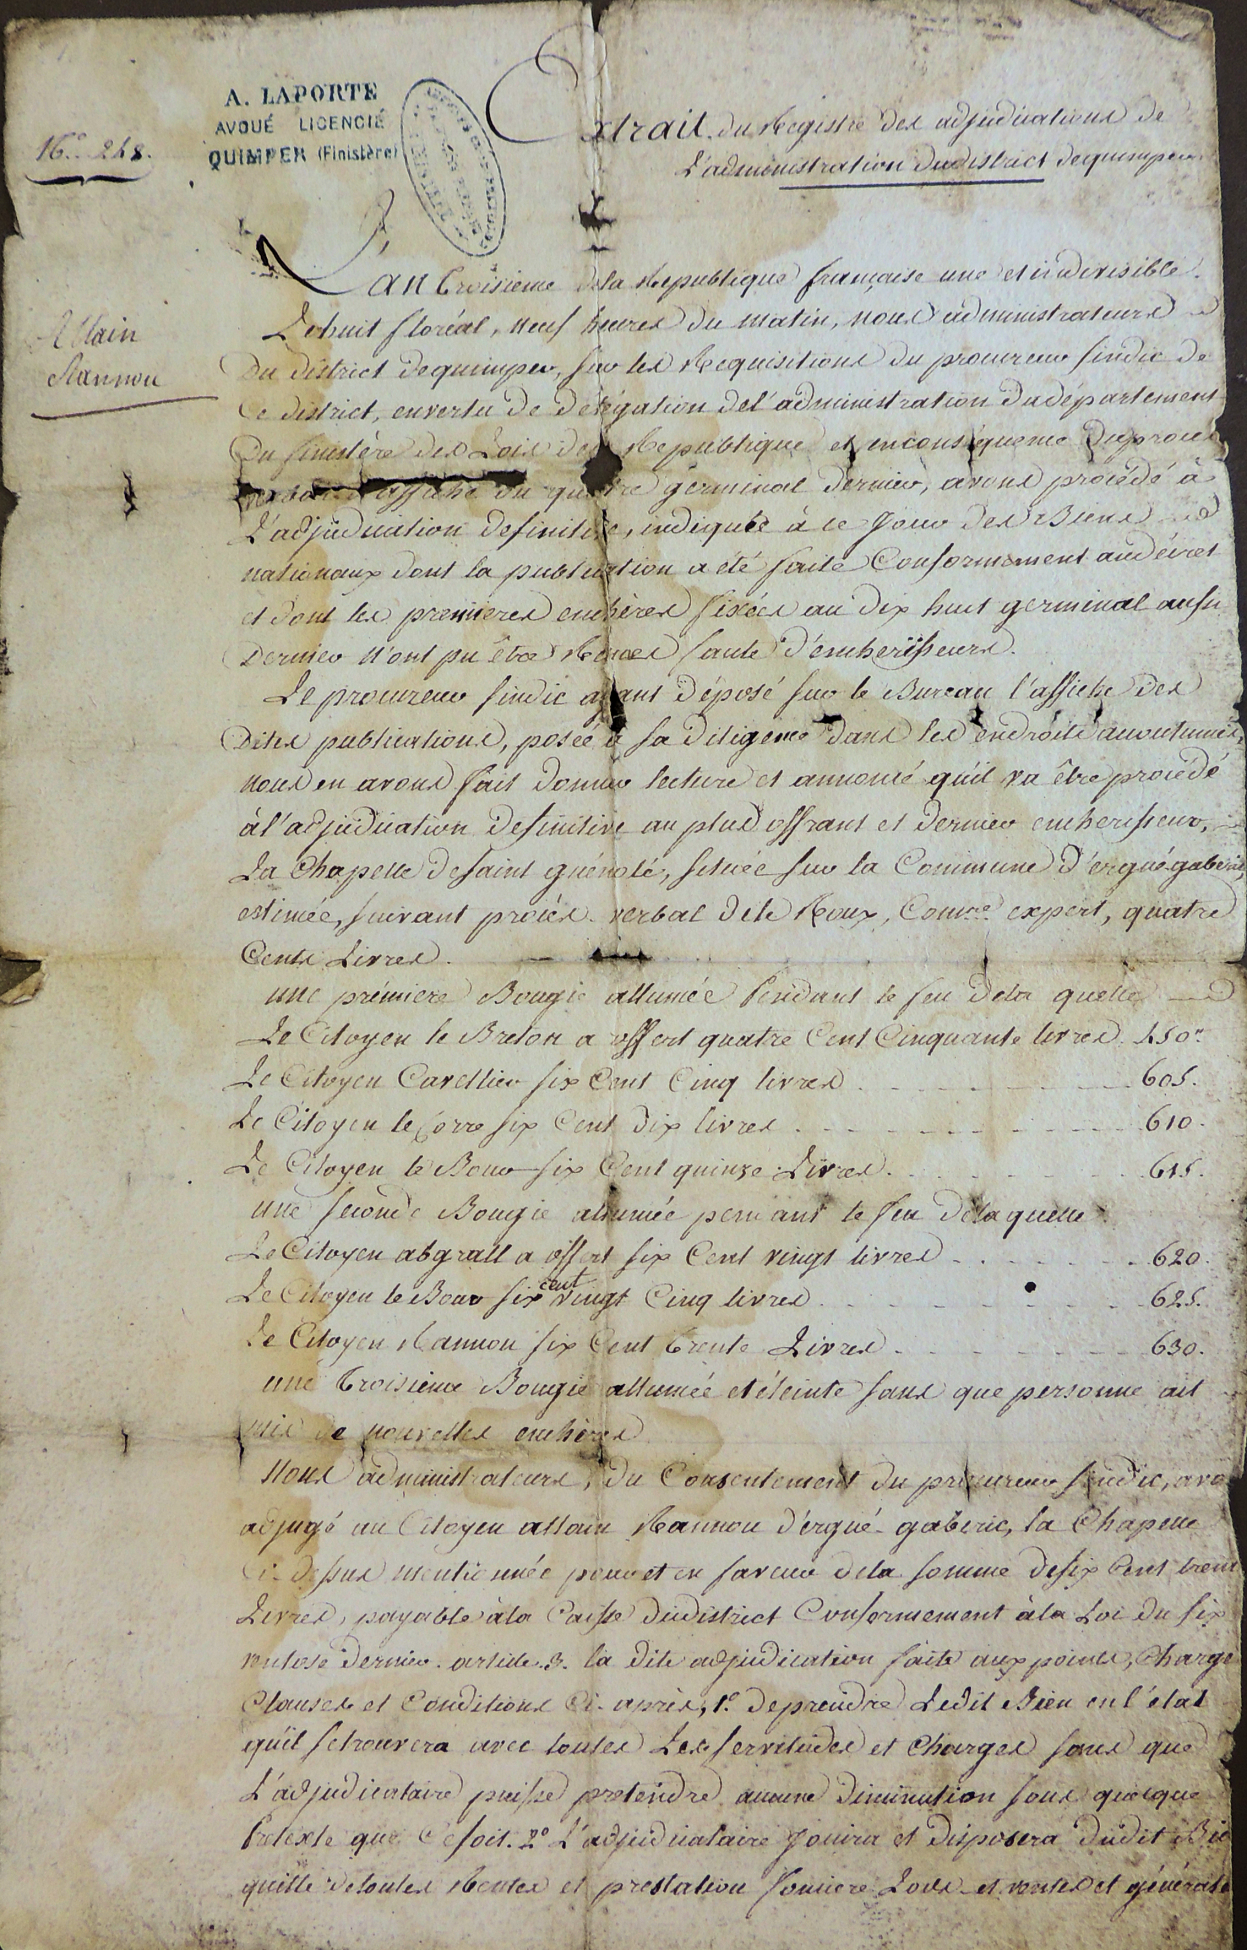 16.e 248.
A. LAPORTE
AVOUÉ LICENCIÉ
QUIMPER (Finistère)
Extrait du Registre des adjudications de
L'administration du district dequimper.
Allain
Rannou
L'an troisieme dela Republique française une et indivisible.
Lehuit floréal, neuf heures du matin, nous administrateurs
du district dequimper, sur les Requisitions du procureur sindic de
ce district, envertu de délégation del'administration dudépartement
du finistère des Lois de la Republique et enconséquence duprocès
verbal d'affiche du quatre germinal dernier, avons procédé à
L'adjudication definitive, indiquée à ce Jour des Biens
nationaux dont la publication a été faite Conformement audécret
et dont les premieres enchères fixées au dix huit germinal aussi
Dernier n'ont pu être Recues faute d'encherisseurs.
Le procureur sindic ayant déposé sur le Bureau l'affiche des
Dites publications, posée à sa diligence dans les endroits accoutumés,
nous en avons fait donner lecture et annoncé qu'il va être procédé
à l'adjudication definitive au plus offrant et dernier encherisseur,
La Chapelle desaint guénolé, située sur la Commune d'ergué gaberic,
estimée, suivant procès verbal dele Roux, Comre expert, quatre
Cents Livres.
une prémiere Bougie allumée Pendant le feu dela quelle
Le Citoyen le Breton a offert quatre Cent Cinquante livres. 450.
Le Citoyen Cavellier six Cent Cinq livres 605.
Le Citoyen le Corre six Cent Dix livres 610.
Le Citoyen le Bour six Cent quinze Livres. 615.
une seconde Bougie allumée pendant le feu dela quelle
Le Citoyen abgrall a offert six Cent vingt livres 620.
Le Citoyen le Bour six cent vingt Cinq livres 625.
Le Citoyen Rannou six Cent trente Livres 630.
une troisieme Bougie allumée et éteinte sans que personne ait
mis de nouvelles enchères
Nous administrateurs, du Consentement du procureur sindic, avo
adjugé au Citoyen allain Rannou d'ergué-gaberic, la Chapelle
Ci-dessus mentionnée pour et en faveur dela somme desix Cent trent
Livres, payable àla Caisse dudistrict Conformement àla Loi du six
ventose dernier. article.3. la dite adjudication faite aux points, Charge
Clauses et Conditions Ci-après, 1.° deprendre Ledit Bien en l'état
qu'il setrouvera avec toutes Les servitudes et Charges sans que
L'adjudicataire puisse pretendre aucune diminution sous quelque
Pretexte que Cesoit. 2° L'adjudicataire Jouira et disposera dudit Bie
quitte detoutes Rentes et prestation fonciere Lods et ventes et générale